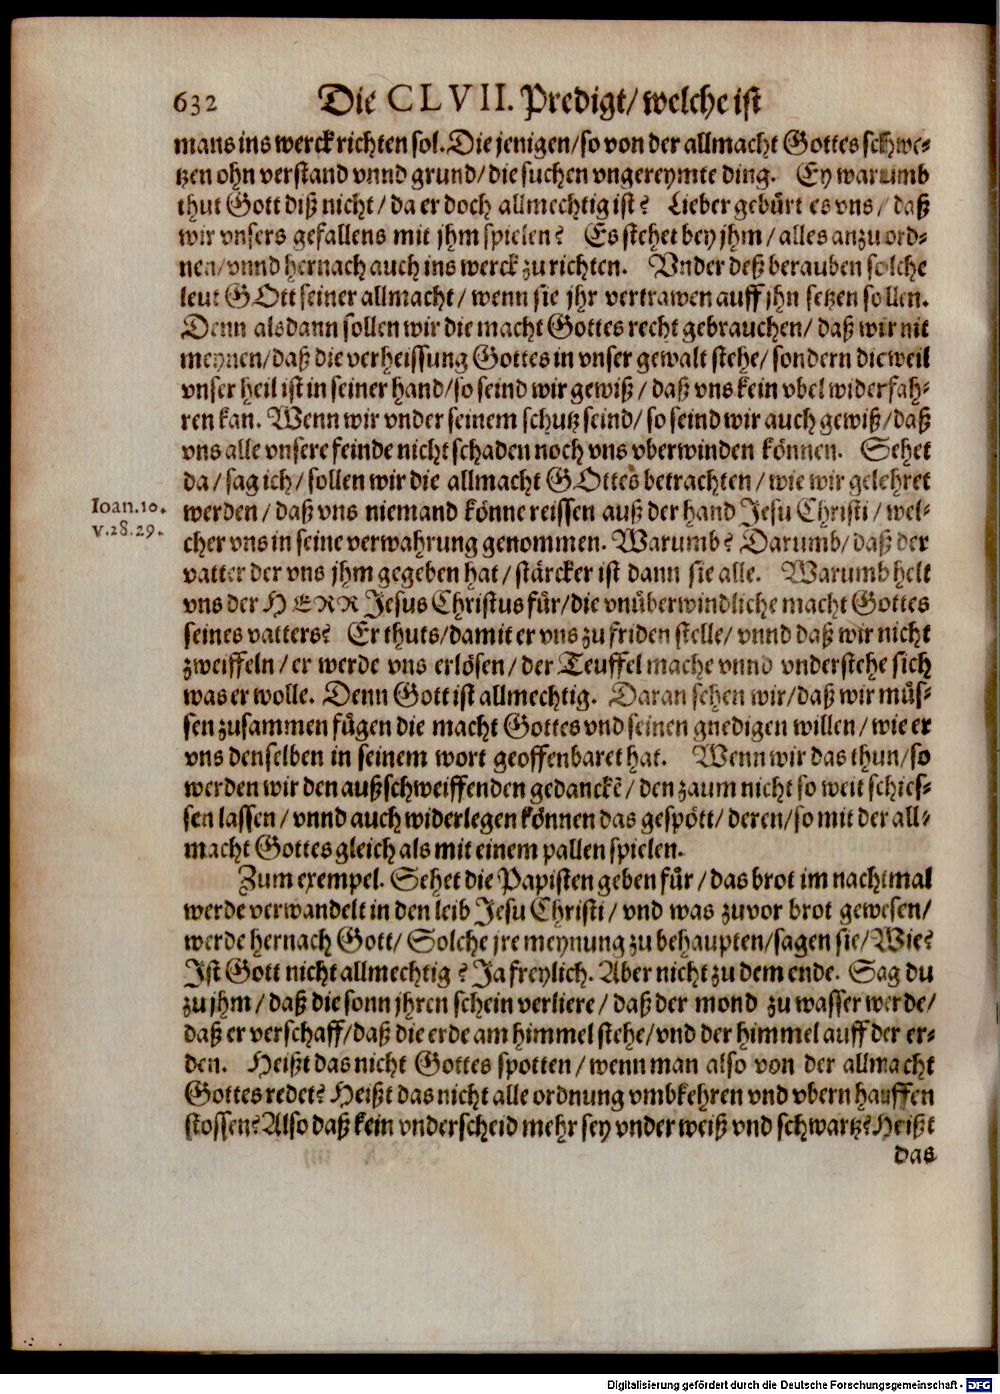 632 Die CLVII. Predigt/ welche ist
mans ins werck richten sol. Die jenigen/ so von der allmacht Gottes schwe-
tzen ohn verstand vnnd grund/ die suchen vngereymte ding. Ey warumb
thut Gott diß nicht/ da er doch allmechtig ist? Lieber gebürt es vns/ daß
wir vnsers gefallens mit jhm spielen? Es stehet bey jhm/ alles anzuord-
nen/ vnnd hernach auch ins werck zu richten. Vnder deß berauben solche
leut GOtt seiner allmacht/ wenn sie jhr vertrawen auff jhn setzen sollen.
Denn alsdann sollen wir die macht Gottes recht gebrauchen/ daß wir nit
meynen/ daß die verheissung Gottes in vnser gewalt stehe/ sondern dieweil
vnser heil ist in seiner hand/ so seind wir gewiß/ daß vns kein vbel widerfah-
ren kan. Wenn wir vnder seinem schutz seind/ so seind wir auch gewiß/ daß
vns alle vnsere feinde nicht schaden noch vns vberwinden können. Sehet
da/ sag ich/ sollen wir die allmacht GOttes betrachten/ wie wir gelehret
Ioan.10.
v.28.29.
werden/ daß vns niemand könne reissen auß der hand Jesu Christi/ wel-
cher vns in seine verwahrung genommen. Warumb? Darumb/ daß der
vatter der vns jhm gegeben hat/ stärcker ist dann sie alle. Warumb helt
vns der HERR Jesus Christus für/ die vnüberwindliche macht Gottes
seines vatters? Er thuts/ damit er vns zu friden stelle/ vnnd daß wir nicht
zweiffeln/ er werde vns erlösen/ der Teuffel mache vnnd vnderstehe sich
was er wolle. Denn Gott ist allmechtig. Daran sehen wir/ daß wir müs-
sen zusammen fügen die macht Gottes vnd seinen gnedigen willen/ wie er
vns denselben in seinem wort geoffenbaret hat. Wenn wir das thun/ so
werden wir den außschweiffenden gedanckẽ/ den zaum nicht so weit schies-
sen lassen/ vnnd auch widerlegen können das gespött/ deren/ so mit der all-
macht Gottes gleich als mit einem pallen spielen.
Zum exempel. Sehet die Papisten geben für/ das brot im nachtmal
werde verwandelt in den leib Jesu Christi/ vnd was zuvor brot gewesen/
werde hernach Gott/ Solche jre meynung zu behaupten/ sagen sie/ Wie?
Ist Gott nicht allmechtig? Ja freylich. Aber nicht zu dem ende. Sag du
zu jhm/ daß die sonn jhren schein verliere/ daß der mond zu wasser werde/
daß er verschaff/ daß die erde am himmel stehe/ vnd der himmel auff der er-
den. Heißt das nicht Gottes spotten/ wenn man also von der allmacht
Gottes redet? Heißt das nicht alle ordnung vmbkehren vnd vbern hauffen
stossen? Also daß kein vnderscheid mehr sey vnder weiß vnd schwartz? Heißt
das
Digitalisierung gefördert durch die Deutsche Forschungsgemeinschaft - DFG